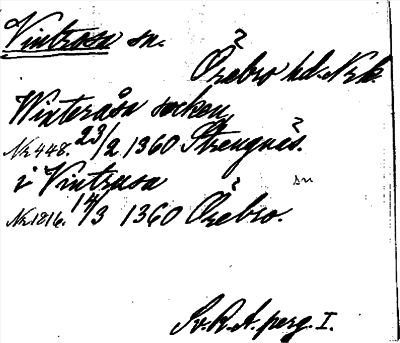 Vintrosa sn.
Örebro hd. Nrk.
Winteråsa socken
Nr 448. 23/2 1360 Strengnäs.
i Vintrusa sn
Nr. 1816. 14/3 1360 Örebro.
Sv. R. A. perg. I.